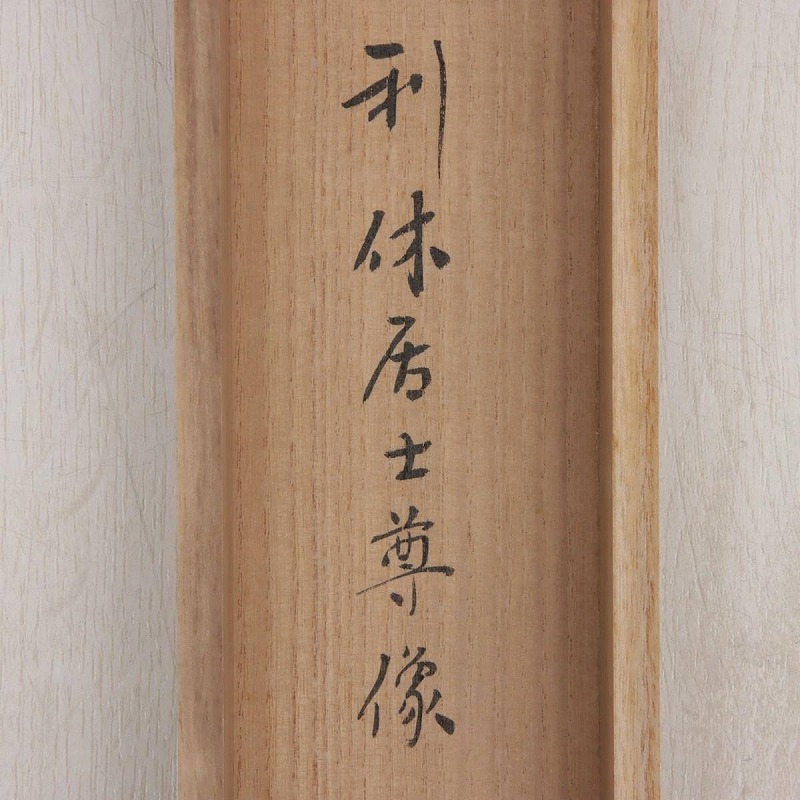 利休居士尊像